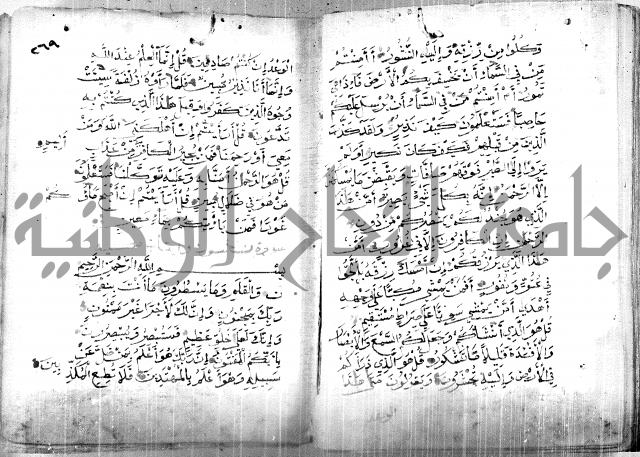 وكلوا من رزقه وإليه النشور أأمنتم
من في السماء أن يخسف بكم الأرض فإذا هي
تمور أم أمنتم من في السماء أن يرسل عليكم
حاصبا فستعلمون كيف نذير ولقد كذب
الذين من قبلهم فكيف كان نكير أولم
يروا إلى الطير فوقهم صافات ويقبضن ما يمسكهن
إلا الرحمن إنه بكل شيء بصير أمن هذا
الذي هو جند لكم ينصركم من دون
الرحمن إن الكافرون إلا في غرور أمن
هذا الذي يرزقكم إن أمسك رزقه بل لجوا
في عتو ونفور أفمن يمشي مكبا على وجهه
أهدى أمن يمشي سويا على صراط مستقيم
قل هو الذي أنشأكم وجعل لكم السمع والأبصار
والأفئدة قليلا ما تشكرون قل هو الذي ذرأكم
في الأرض وإليه تحشرون ويقولون متى هذا
٢٦٩
الوعد إن كنتم صادقين قل إنما العلم عند الله
وإنما أنا نذير مبين فلما رأوه زلفة سيئت
وجوه الذين كفروا وقيل هذا الذي كنتم به
تدعون قل أرأيتم إن أهلكني الله ومن
معي أو رحمنا فمن يجير الكافرين من عذاب
أليم
قل هو الرحمن آمنا به وعليه توكلنا فستعلمون
من هو في ضلال مبين قل أرأيتم إن أصبح ماؤ
كم
غورا فمن يأتيكم بماء معين
بسم الله الرحمن الرحيم
ن والقلم وما يسطرون ما أنت بنعمة
ربك بمجنون وإن لك لأجرا غير ممنون
وإنك لعلى خلق عظيم فستبصر ويبصرون
بأيكم المفتون إن ربك هو أعلم بمن ضل عن
سبيله وهو أعلم بالمهتدين فلا تطع المكذ
بين
جامعة النجاح الوطنية